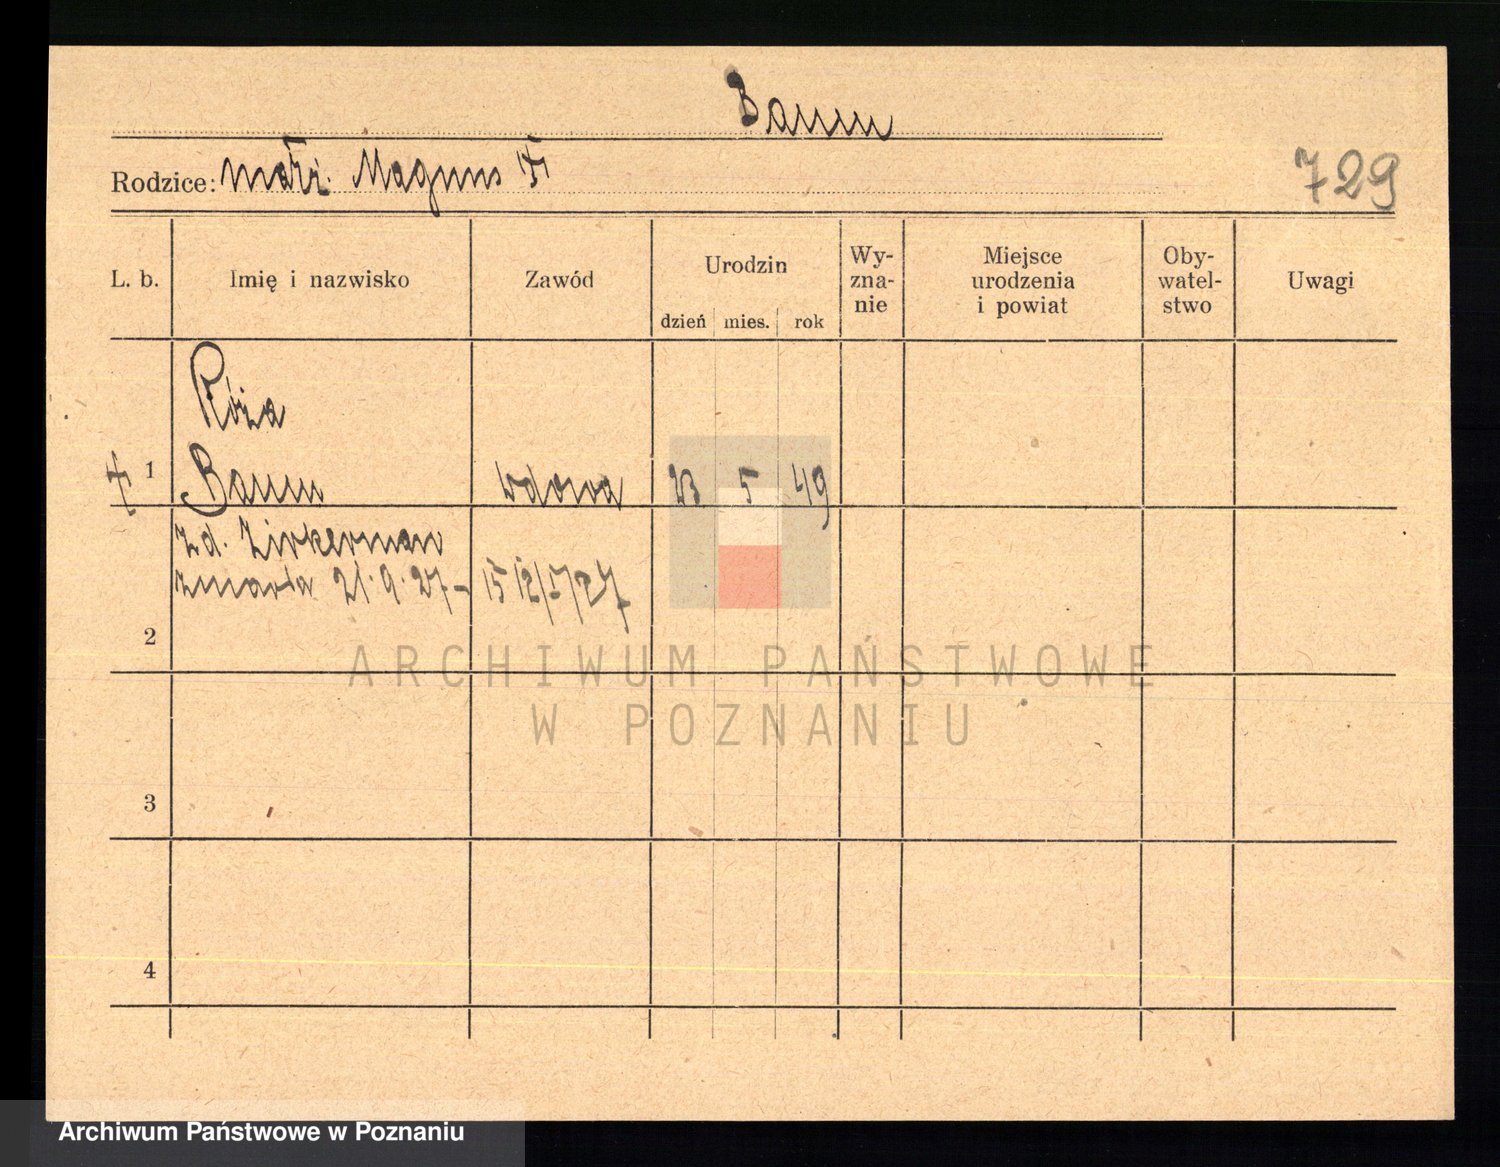 Baum
Rodzice: małż. Magnus †
729
L. b. Imię i nazwisko Zawód Urodzin Wy-zna-nie Miejsce urodzenia i powiat Oby-watel-stwo Uwagi
dzień mies. rok
Róża
† 1 Baum wdowa 23 5 49
zd. Zirkerman
zmarła 21.9.27-
2
3
4
ARCHIWUM PAŃSTWOWE
W POZNANIU
Archiwum Państwowe w Poznaniu